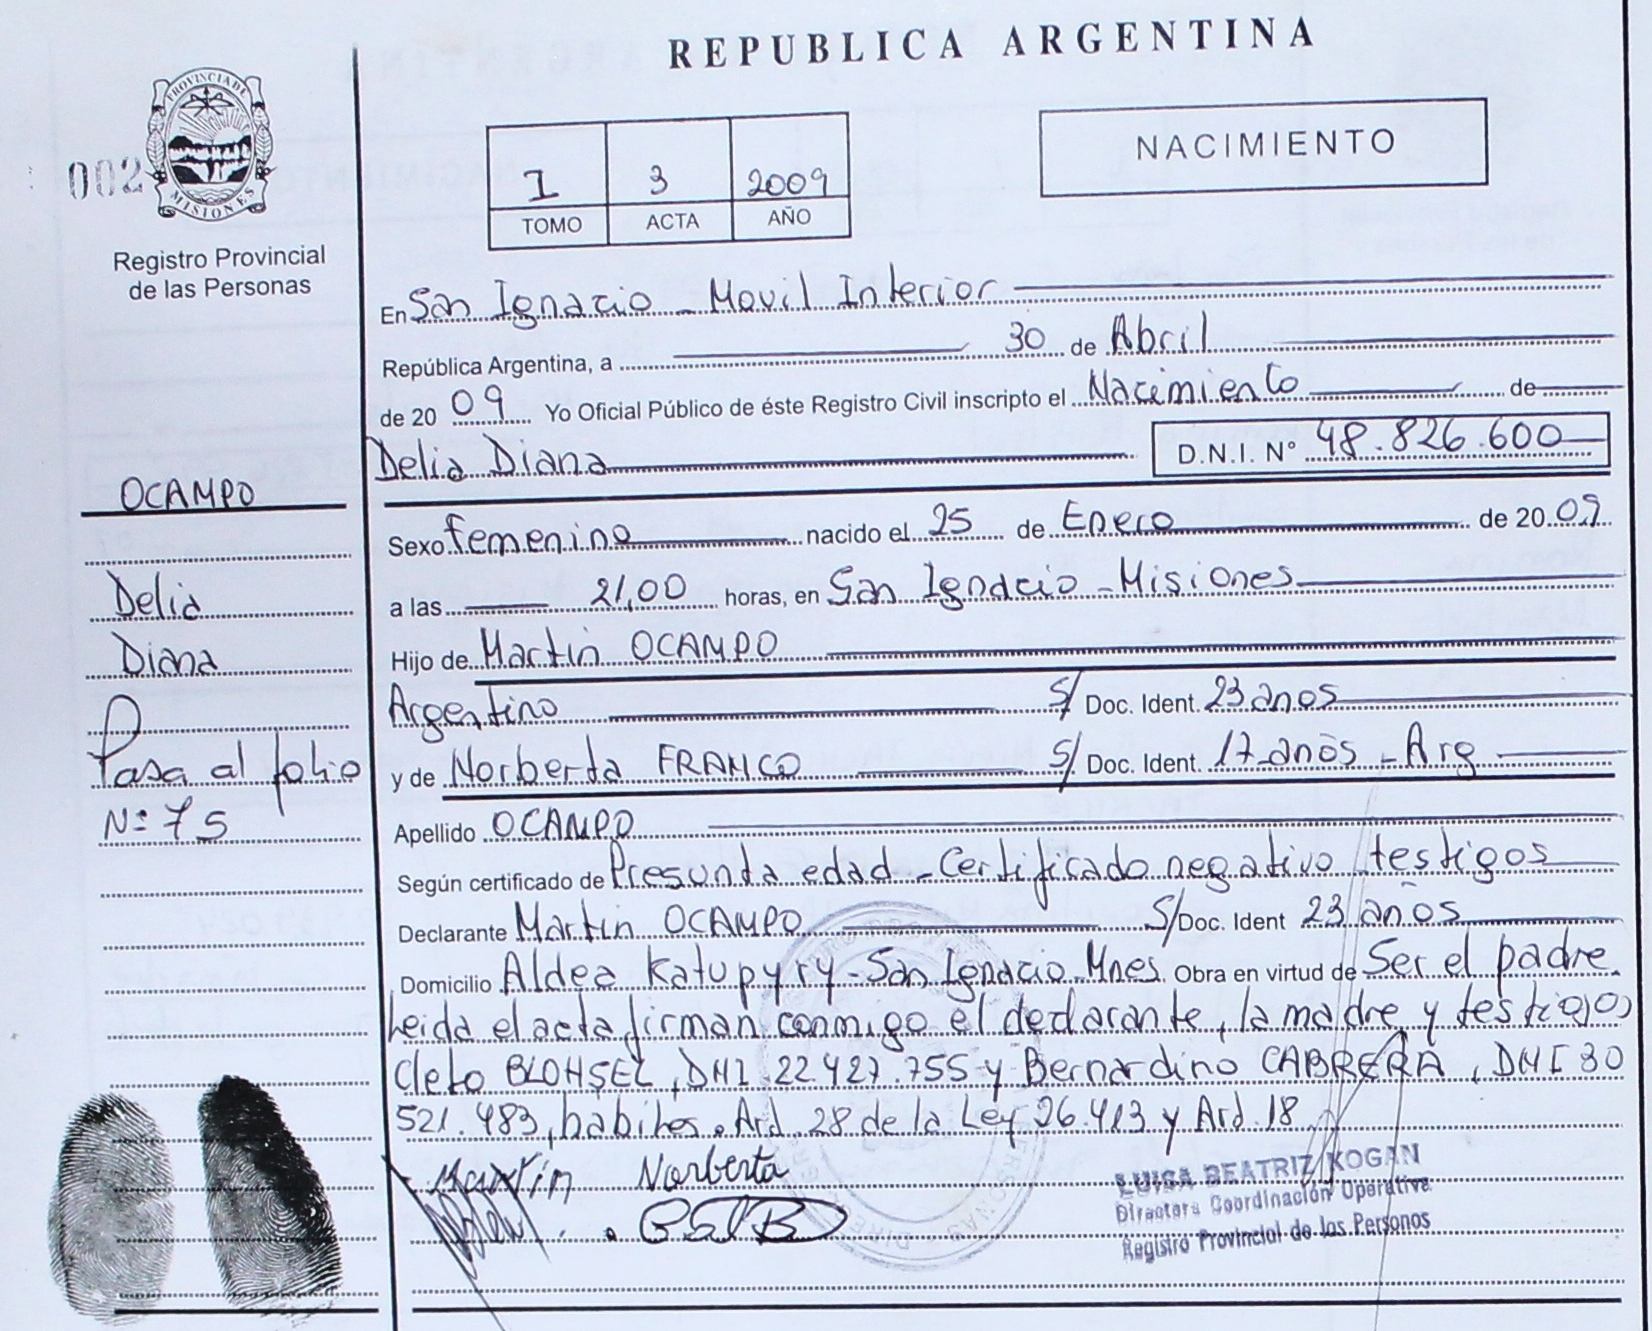 REPUBLICA ARGENTINA
PROVINCIA DE
MISIONES
002
Registro Provincial
de las Personas
I 3 2009
TOMO ACTA AÑO
NACIMIENTO
En San Ignacio - Movil Interior
República Argentina, a 30 de Abril
de 20 09 Yo Oficial Público de éste Registro Civil inscripto el Nacimiento de
Delia Diana D.N.I. Nº 48.826.600
OCAMPO
Delia
Diana
Pasa al folio
Nº 75
Sexo femenino nacido el 25 de Enero de 20 09
a las 21,00 horas, en San Ignacio - Misiones
Hijo de Martin OCAMPO
Argentino S/ Doc. Ident. 23 anos
y de Norberta FRANCO S/ Doc. Ident. 17 anos - Arg
Apellido OCAMPO
Según certificado de Presunta edad - Certificado negativo testigos
Declarante Martin OCAMPO S/ Doc. Ident 23 años
Domicilio Aldea Katupyry - San Ignacio Mnes. Obra en virtud de Ser el padre.
Leida el acta firman conmigo el declarante, la madre y testigos
Cleto DNI 22.427.755 y Bernardino CABRERA, DNI 30
521.483, habiles. Art. 28 de la Ley 26.413 y Art. 18
Martin Norberta
LUISA BEATRIZ KOGAN
Directora Coordinación Operativa
Registro Provincial de las Personas